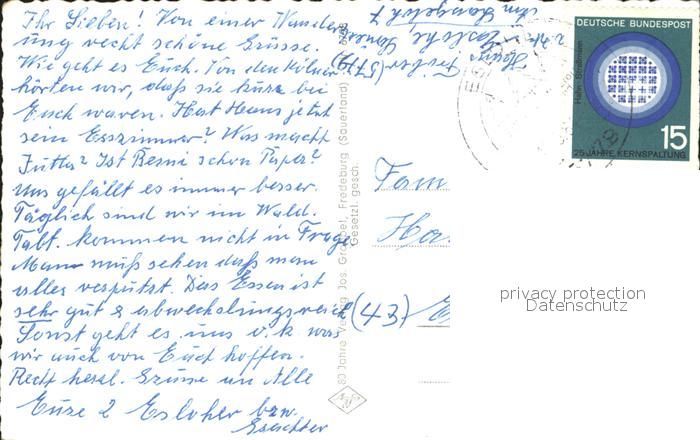 Ihr Lieben! Von einer Wander-
ung recht schöne Grüsse.
Wie geht es Euch. Von den Kölner
hörten wir, daß sie kurz bei
Euch waren. Hat Hans jetzt
sein Esszimmer? Was macht
Jutta? Ist Berni schon Papa?
Uns gefällt es immer besser.
Täglich sind wir im Wald.
Tabl. kommen nicht in Frage
Man muß sehen daß man
alles verputzt. Das Essen ist
sehr gut & abwechslungsreich
Sonst geht es uns o.k was
wir auch von Euch hoffen.
Recht herzl. Grüsse an Alle
Eure 2 Esloher bzw.
80 Jahre Verlag Jos. Grobbel, Fredeburg (Sauerland)
Gesetzl. gesch.
DEUTSCHE BUNDESPOST
Hahn Straßmann
15
25 JAHRE KERNSPALTUNG
Fam
(43)
privacy protection
Datenschutz